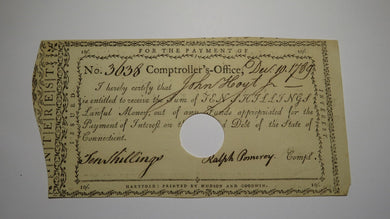 FOR THE PAYMENT OF
INTEREST
ISSUED
No. 3638 Comptroller's-Office, Dec. 10. 1789
I hereby certify that John Hoyt Jr
is entitled to receive the Sum of TEN SHILLINGS
Lawful Money, out of any Funds appropriated for the
Payment of Interest on the Debt of the State of
Connecticut.
Ten Shillings Ralph Pomeroy Compt.
HARTFORD: PRINTED BY HUDSON AND GOODWIN.